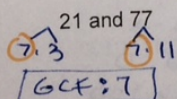 21 and 77
7 3 7 11
GCF: 7